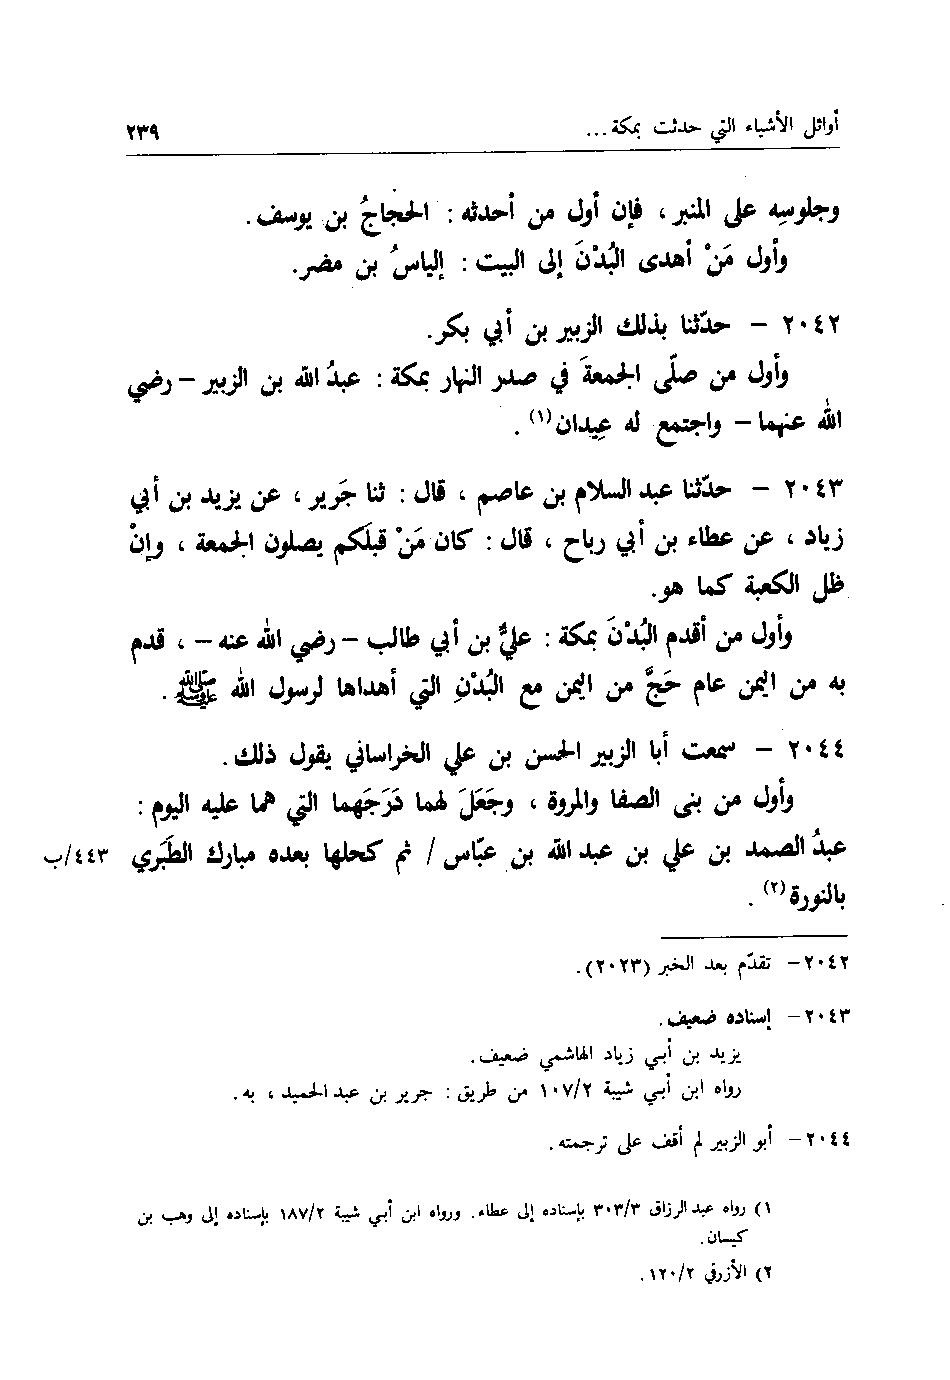 أوائل الأشياء التي حدثت بمكة ... ٢٣٩
وجلوسِه على المنبر ، فإن أول من أحدثه : الحجاجُ بن يوسف .
وأول مَنْ أهدى البُدْنَ إلى البيت : إلياسُ بن مضر.
٢٠٤٢ – حدّثنا بذلك الزبير بن أبي بكر.
وأول من صلّى الجمعةَ في صدر النهار بمكة : عبدُ الله بن الزبير – رضي
الله عنهما – واجتمع له عِيدان(١) .
٢٠٤٣ – حدّثنا عبد السلام بن عاصم ، قال : ثنا جَرير ، عن يزيد بن أبي
زياد ، عن عطاء بن أبي رباح ، قال : كان مَنْ قبلَكم يصلون الجمعة ، وإنْ
ظل الكعبة كما هو.
وأول من أقدم البُدْنَ بمكة : عليٌّ بن أبي طالب – رضي الله عنه – ، قدم
به من اليمن عام حَجَّ من اليمن مع البُدْنِ التي أهداها لرسول الله ﷺ .
٢٠٤٤ – سمعت أبا الزبير الحسن بن علي الخراساني يقول ذلك .
وأول من بنى الصفا والمروة ، وجَعَلَ لهما دَرَجَهما التي هما عليه اليوم :
عبدُ الصمد بن علي بن عبد الله بن عبّاس / ثم كحلها بعده مبارك الطَبَري ٤٤٣/ب
بالنورة(٢) .
٢٠٤٢ – تقدّم بعد الخبر (٢٠٢٣).
٢٠٤٣ – إسناده ضعيف .
يزيد بن أبي زياد الهاشمي ضعيف .
رواه ابن أبي شيبة ١٠٧/٢ من طريق : جرير بن عبد الحميد ، به .
٢٠٤٤ – أبو الزبير لم أقف على ترجمته .
١) رواه عبد الرزاق ٣٠٣/٣ بإسناده إلى عطاء . ورواه ابن أبي شيبة ١٨٧/٢ بإسناده إلى وهب بن
كيسان .
٢) الأزرقي ١٢٠/٢ .